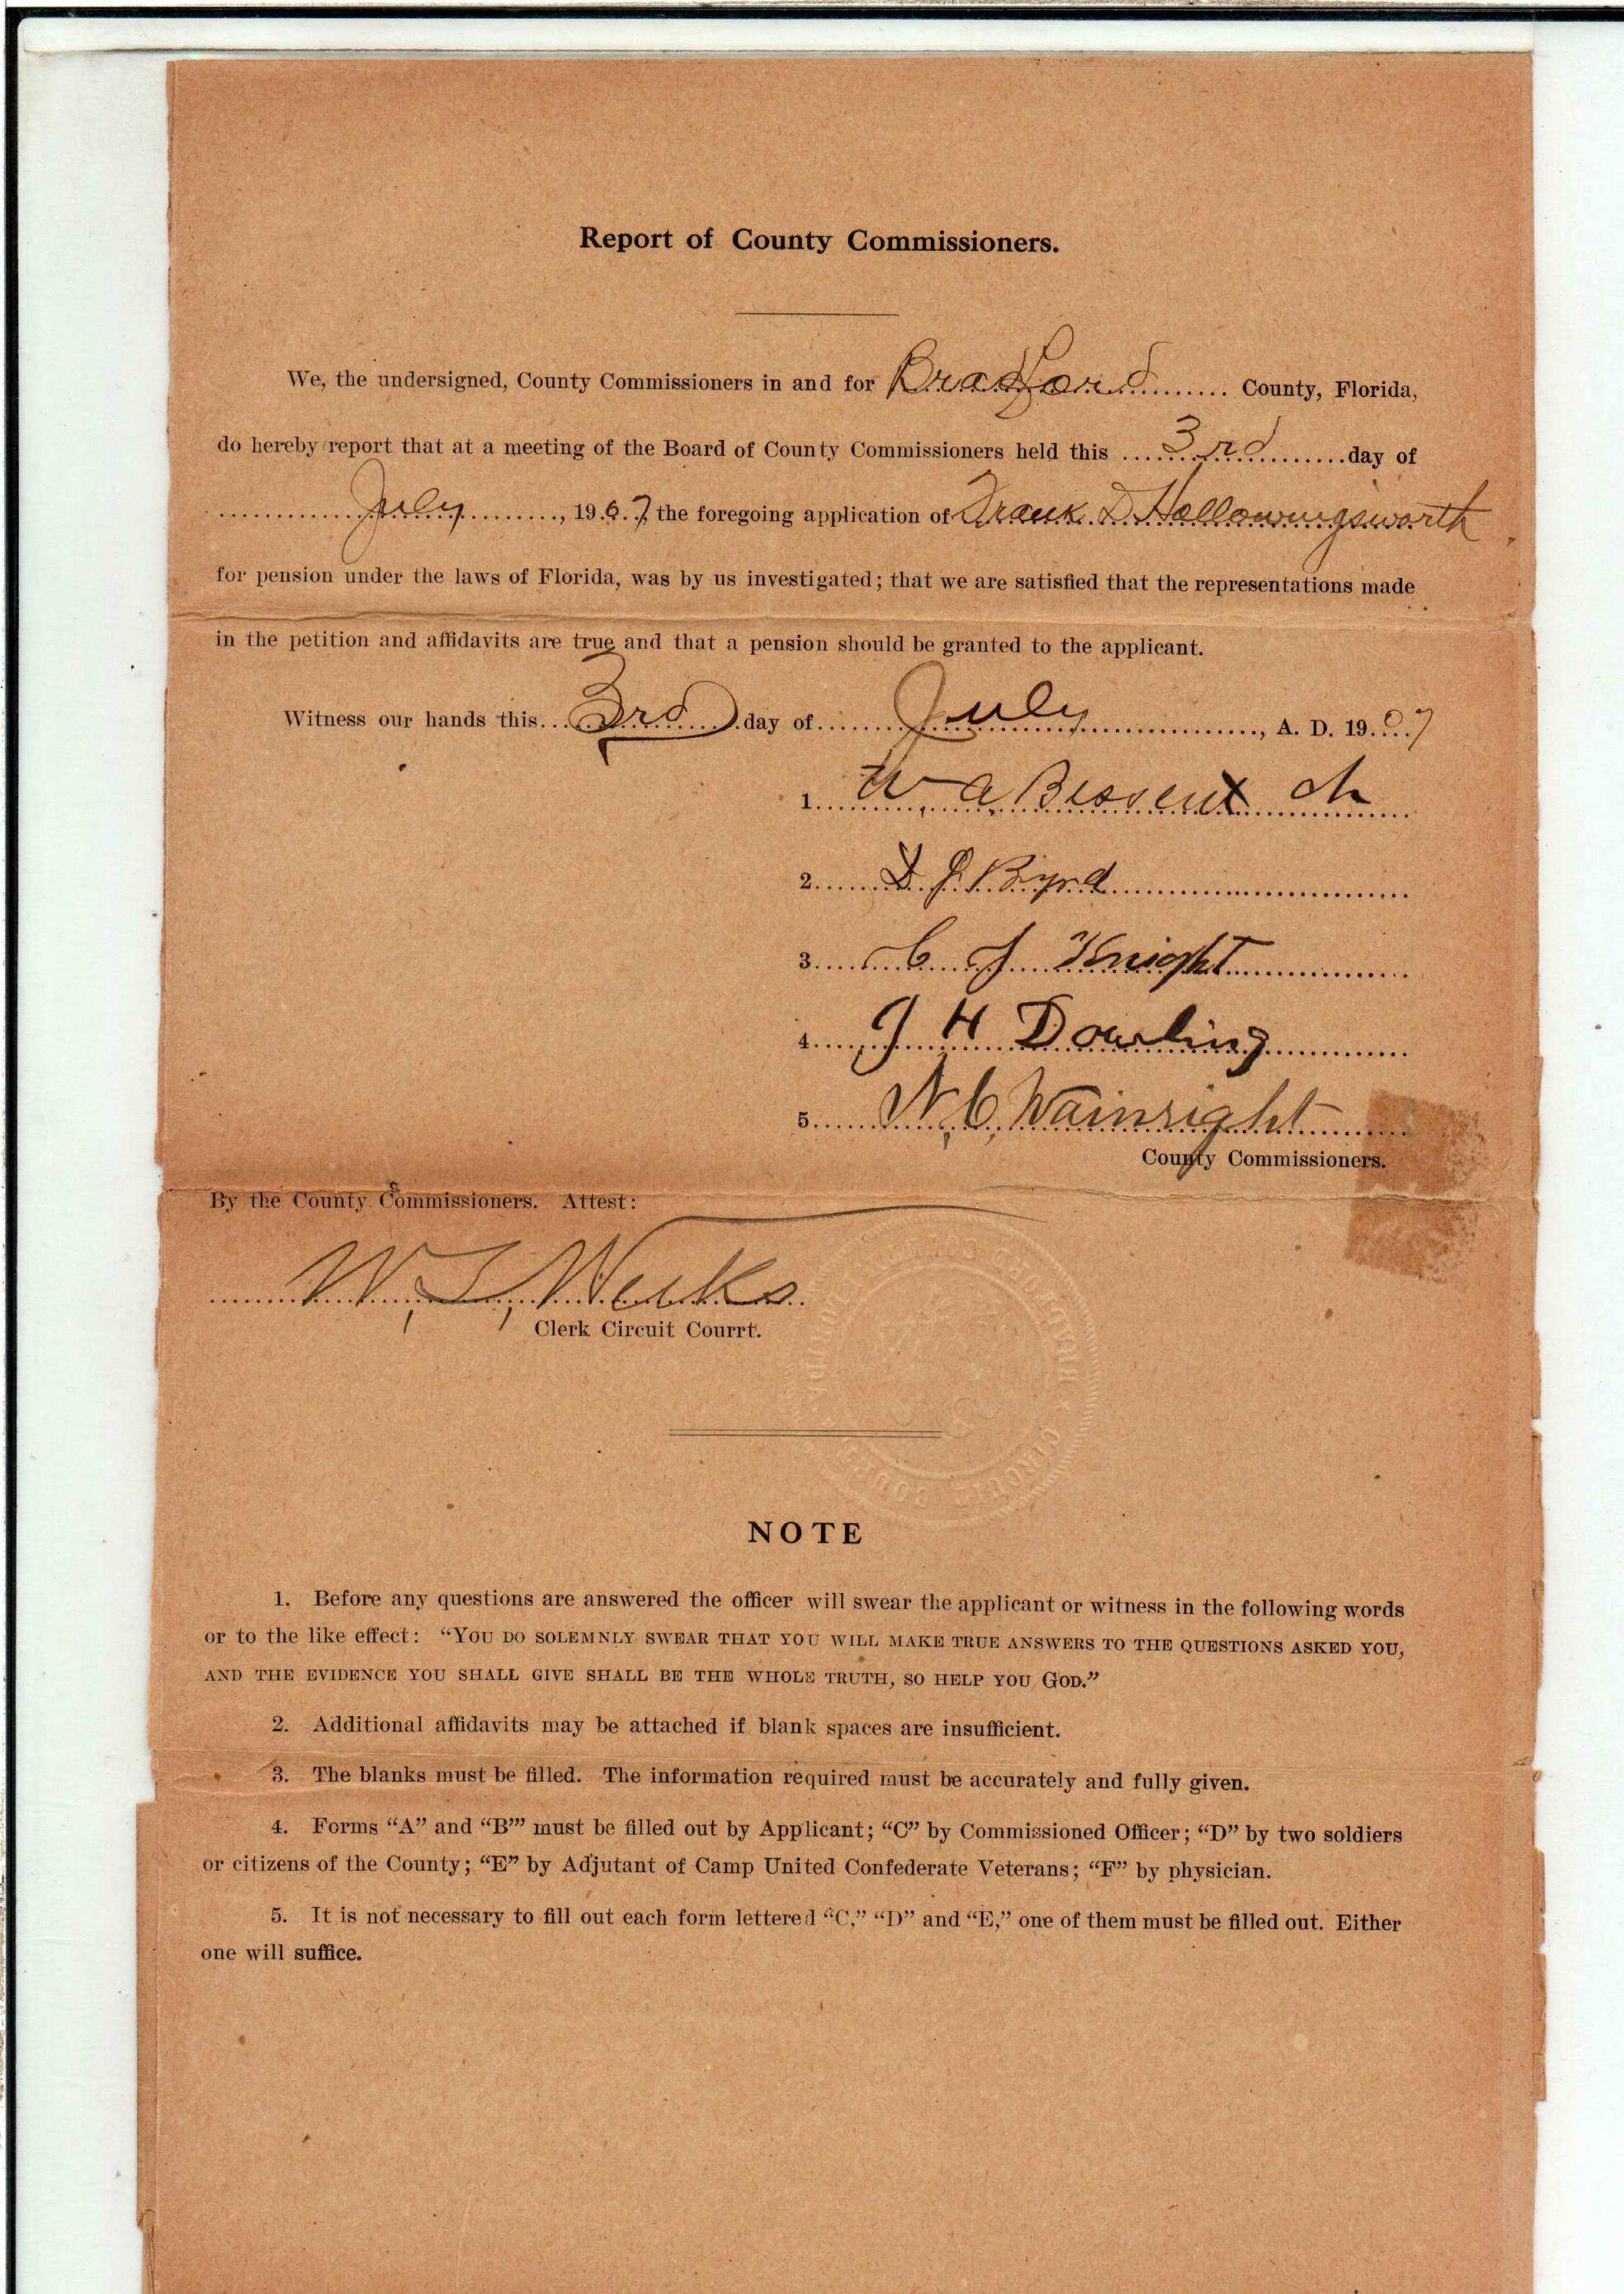 Report of County Commissioners.
We, the undersigned, County Commissioners in and for Bradford County, Florida,
do hereby report that at a meeting of the Board of County Commissioners held this 3rd day of
July, 1907, the foregoing application of Frank D Hollowingsworth
for pension under the laws of Florida, was by us investigated; that we are satisfied that the representations made
in the petition and affidavits are true and that a pension should be granted to the applicant.
Witness our hands this 3rd day of July, A. D. 1907
1. W A Bessent Ch
2. D. J. Byrd
3. C J Knight
4. J H Dowling
5. N. C. Wainright
County Commissioners.
By the County Commissioners. Attest:
W. Weeks
Clerk Circuit Courrt.
NOTE
1. Before any questions are answered the officer will swear the applicant or witness in the following words
or to the like effect: “YOU DO SOLEMNLY SWEAR THAT YOU WILL MAKE TRUE ANSWERS TO THE QUESTIONS ASKED YOU,
AND THE EVIDENCE YOU SHALL GIVE SHALL BE THE WHOLE TRUTH, SO HELP YOU GOD.”
2. Additional affidavits may be attached if blank spaces are insufficient.
3. The blanks must be filled. The information required must be accurately and fully given.
4. Forms “A” and “B’” must be filled out by Applicant; “C” by Commissioned Officer; “D” by two soldiers
or citizens of the County; “E” by Adjutant of Camp United Confederate Veterans; “F” by physician.
5. It is not necessary to fill out each form lettered “C,” “D” and “E,” one of them must be filled out. Either
one will suffice.